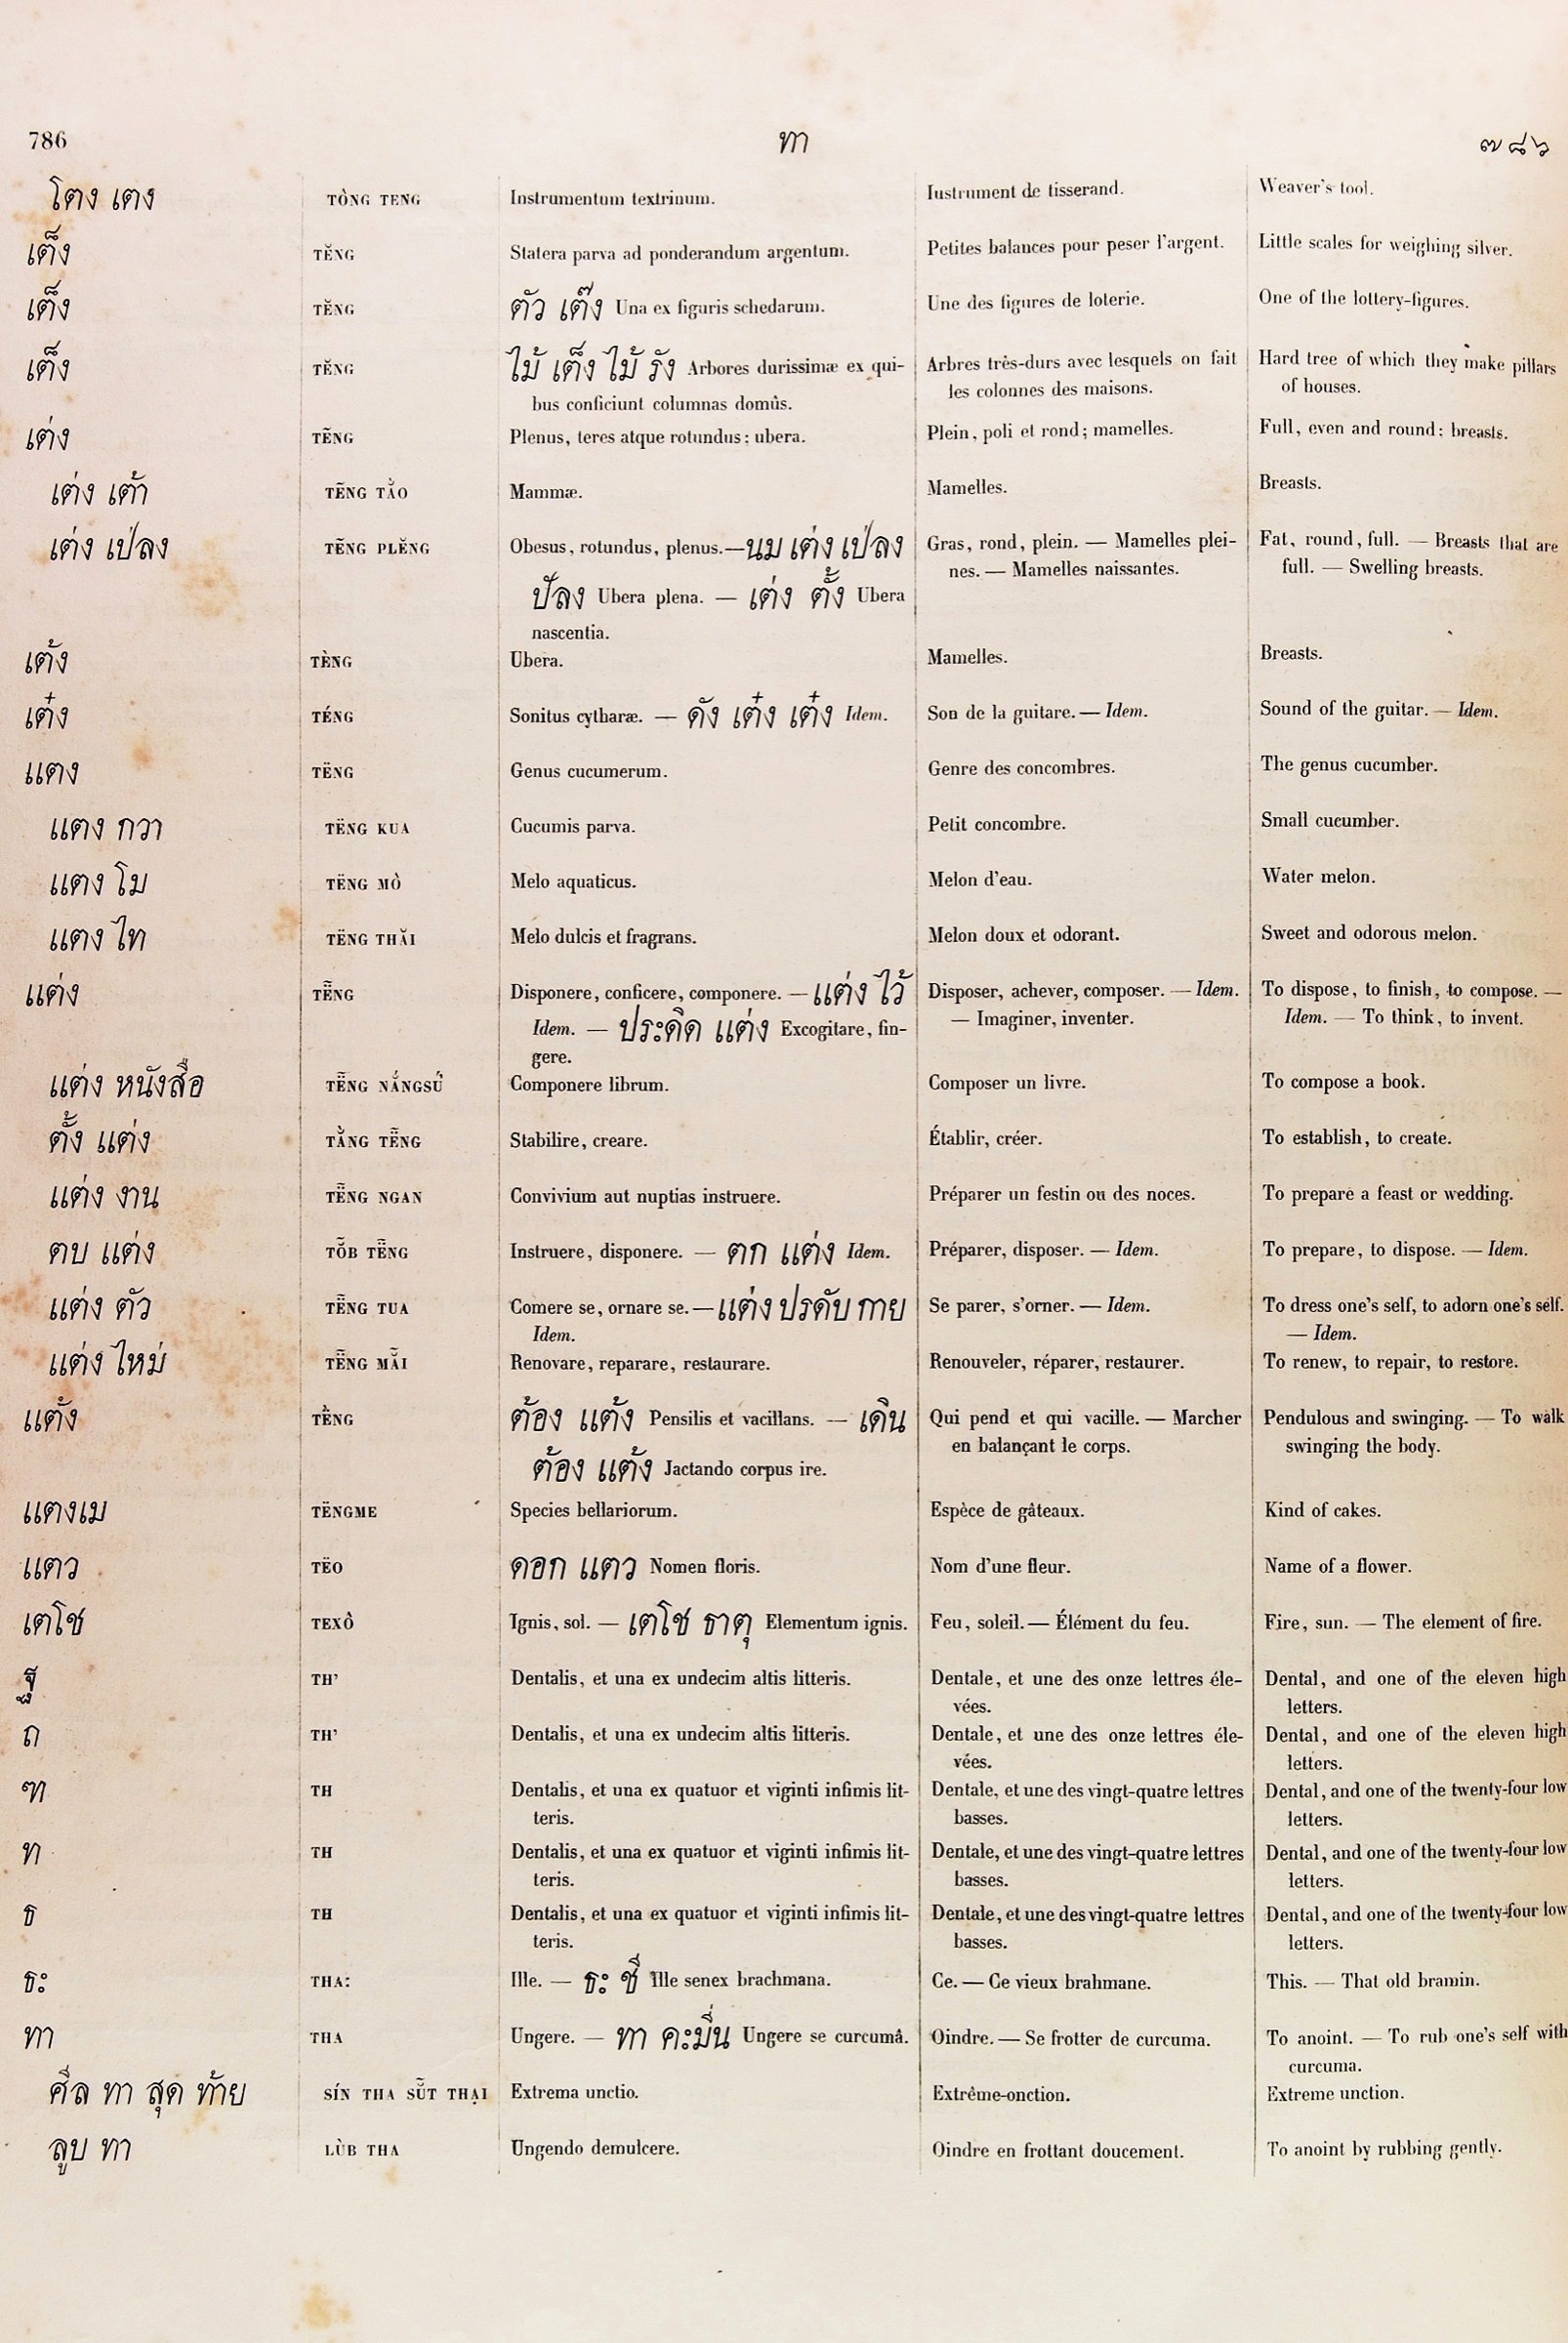 786 ทา ๗๘๖
โตง เตง TÒNG TENG Instrumentum textrinum. Instrument de tisserand. Weaver's tool.
เต็ง TĔNG Statera parva ad ponderandum argentum. Petites balances pour peser l'argent. Little scales for weighing silver.
เต็ง TĔNG ตัว เต๊ง Una ex figuris schedarum. Une des figures de loterie. One of the lottery-figures.
เต็ง TĔNG ไม้ เต็ง ไม้ รัง Arbores durissimæ ex qui- Arbres très-durs avec lesquels on fait Hard tree of which they make pillars
bus conficiunt columnas domûs. les colonnes des maisons. of houses.
เต่ง TẼNG Plenus, teres atque rotundus: ubera. Plein, poli et rond; mamelles. Full, even and round: breasts.
เต่ง เต้า TẼNG TẰO Mammæ. Mamelles. Breasts.
เต่ง เปล่ง TẼNG PLĔNG Obesus, rotundus, plenus. — นม เต่ง เปล่ง Gras, rond, plein. — Mamelles plei- Fat, round, full. — Breasts that are
ปัลง Ubera plena. — เต่ง ตั้ง Ubera nes. — Mamelles naissantes. full. — Swelling breasts.
nascentia.
เต้ง TÈNG Ubera. Mamelles. Breasts.
เต๋ง TÉNG Sonitus cytharæ. — ดัง เต๋ง เต๋ง Idem. Son de la guitare. — Idem. Sound of the guitar. — Idem.
แตง TËNG Genus cucumerum. Genre des concombres. The genus cucumber.
แตง กวา TËNG KUA Cucumis parva. Petit concombre. Small cucumber.
แตง โม TËNG MÒ Melo aquaticus. Melon d'eau. Water melon.
แตง ไท TËNG THĂI Melo dulcis et fragrans. Melon doux et odorant. Sweet and odorous melon.
แต่ง TË̃NG Disponere, conficere, componere. — แต่ง ไว้ Disposer, achever, composer. — Idem. To dispose, to finish, to compose. —
Idem. — ประดิด แต่ง Excogitare, fin- — Imaginer, inventer. Idem. — To think, to invent.
gere.
แต่ง หนังสือ TË̃NG NẮNGSŬ́ Componere librum. Composer un livre. To compose a book.
ตั้ง แต่ง TẰNG TË̃NG Stabilire, creare. Établir, créer. To establish, to create.
แต่ง งาน TË̃NG NGAN Convivium aut nuptias instruere. Préparer un festin ou des noces. To prepare a feast or wedding.
ตบ แต่ง TŎ̃B TË̃NG Instruere, disponere. — ตก แต่ง Idem. Préparer, disposer. — Idem. To prepare, to dispose. — Idem.
แต่ง ตัว TË̃NG TUA Comere se, ornare se. — แต่ง ปรดับ กาย Se parer, s'orner. — Idem. To dress one's self, to adorn one's self.
Idem. — Idem.
แต่ง ใหม่ TË̃NG MẴI Renovare, reparare, restaurare. Renouveler, réparer, restaurer. To renew, to repair, to restore.
แต้ง TË̀NG ต้อง แต้ง Pensilis et vacillans. — เดิน Qui pend et qui vacille. — Marcher Pendulous and swinging. — To walk
ต้อง แต้ง Jactando corpus ire. en balançant le corps. swinging the body.
แตงเม TËNGME Species bellariorum. Espèce de gâteaux. Kind of cakes.
แตว TËO ดอก แตว Nomen floris. Nom d'une fleur. Name of a flower.
เตโช TEXÔ Ignis, sol. — เตโช ธาตุ Elementum ignis. Feu, soleil. — Élément du feu. Fire, sun. — The element of fire.
ฐ TH' Dentalis, et una ex undecim altis litteris. Dentale, et une des onze lettres éle- Dental, and one of the eleven high
vées. letters.
ถ TH' Dentalis, et una ex undecim altis litteris. Dentale, et une des onze lettres éle- Dental, and one of the eleven high
vées. letters.
ฑ TH Dentalis, et una ex quatuor et viginti infimis lit- Dentale, et une des vingt-quatre lettres Dental, and one of the twenty-four low
teris. basses. letters.
ท TH Dentalis, et una ex quatuor et viginti infimis lit- Dentale, et une des vingt-quatre lettres Dental, and one of the twenty-four low
teris. basses. letters.
ธ TH Dentalis, et una ex quatuor et viginti infimis lit- Dentale, et une des vingt-quatre lettres Dental, and one of the twenty-four low
teris. basses. letters.
ธะ THA: Ille. — ธะ ชี Ille senex brachmana. Ce. — Ce vieux brahmane. This. — That old bramin.
ทา THA Ungere. — ทา คะมิ่น Ungere se curcumâ. Oindre. — Se frotter de curcuma. To anoint. — To rub one's self with
curcuma.
ศีล ทา สุด ท้าย SÍN THA SŬ̃T THẠI Extrema unctio. Extrême-onction. Extreme unction.
ลูบ ทา LÙB THA Ungendo demulcere. Oindre en frottant doucement. To anoint by rubbing gently.